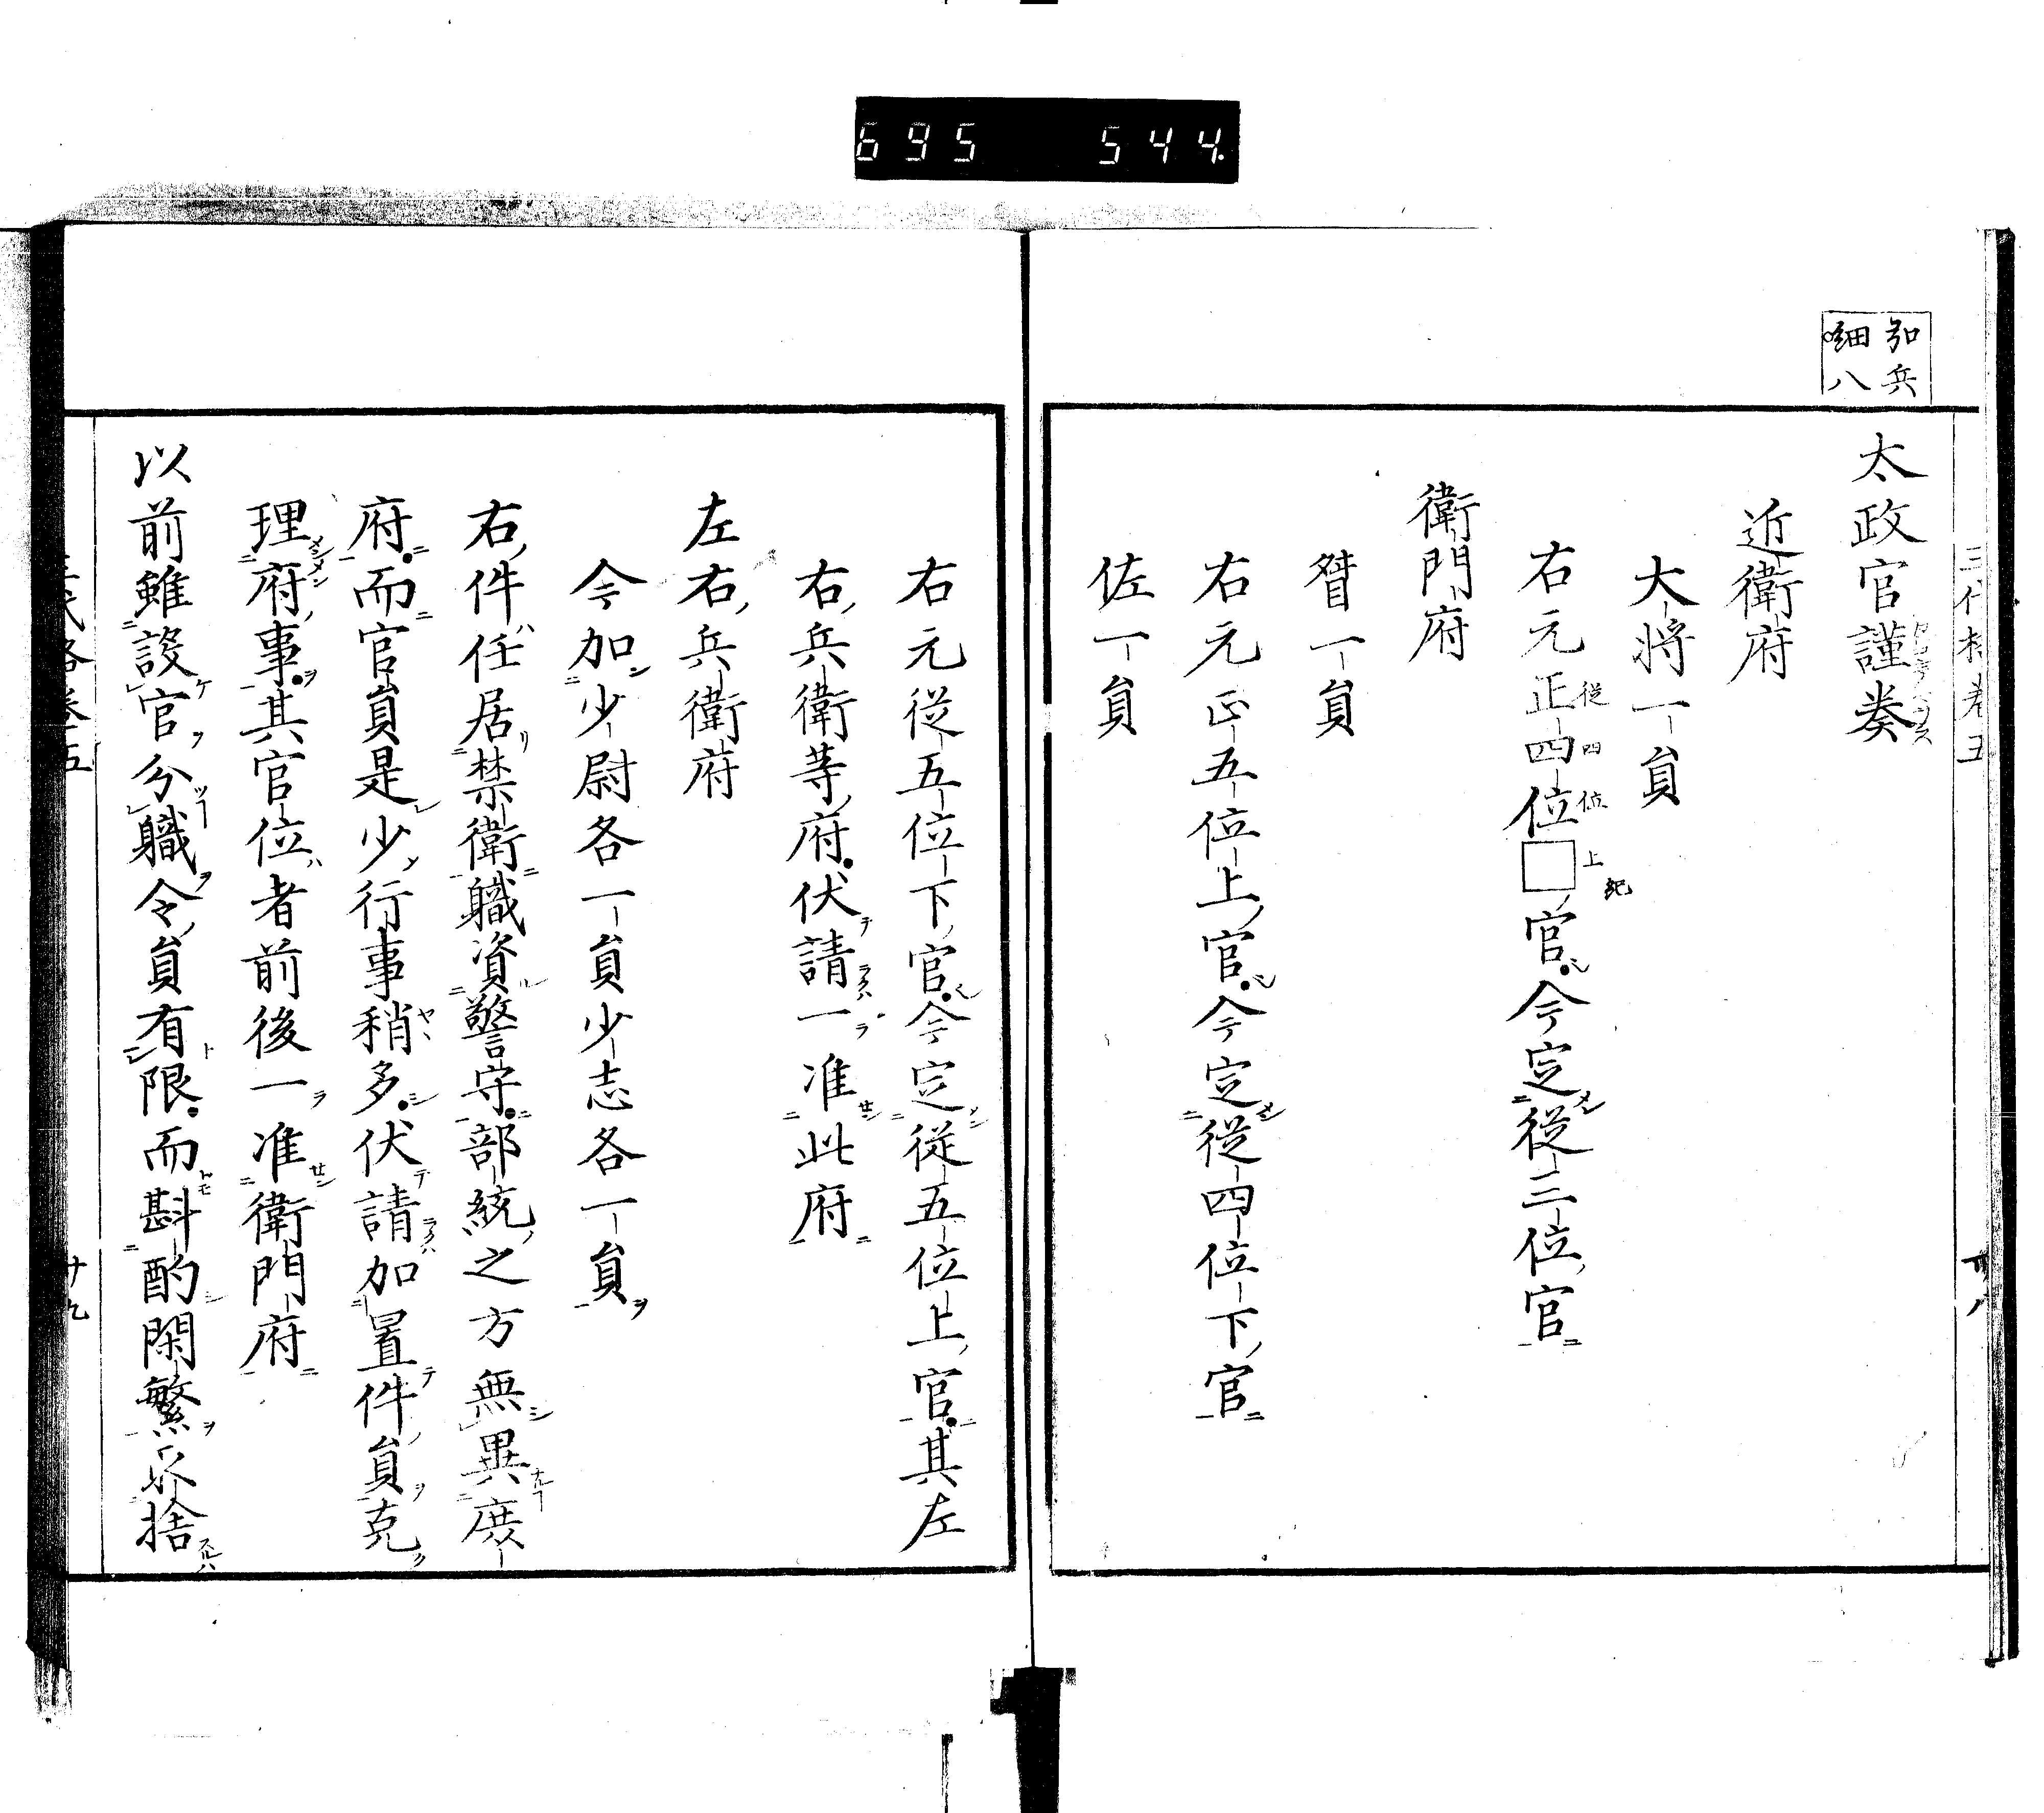 695 544
弘兵
細八
太政官謹奏
近衛府
大将一員
右元正四位□官今定従三位官
従四位上紀
衛門府
督一員
右元正五位上官今定従四位下官
佐一員
右元従五位下官今定従五位上官其左
右兵衛等府伏請一准此府
左右兵衛府
今加少尉各一員少志各一員
右件任居禁衛職資警守部統之方無異庶
府而官員是少行事稍多伏請加置件員克
理府事其官位者前後一准衛門府
以前雖設官分職令員有限而斟酌閑繁取捨